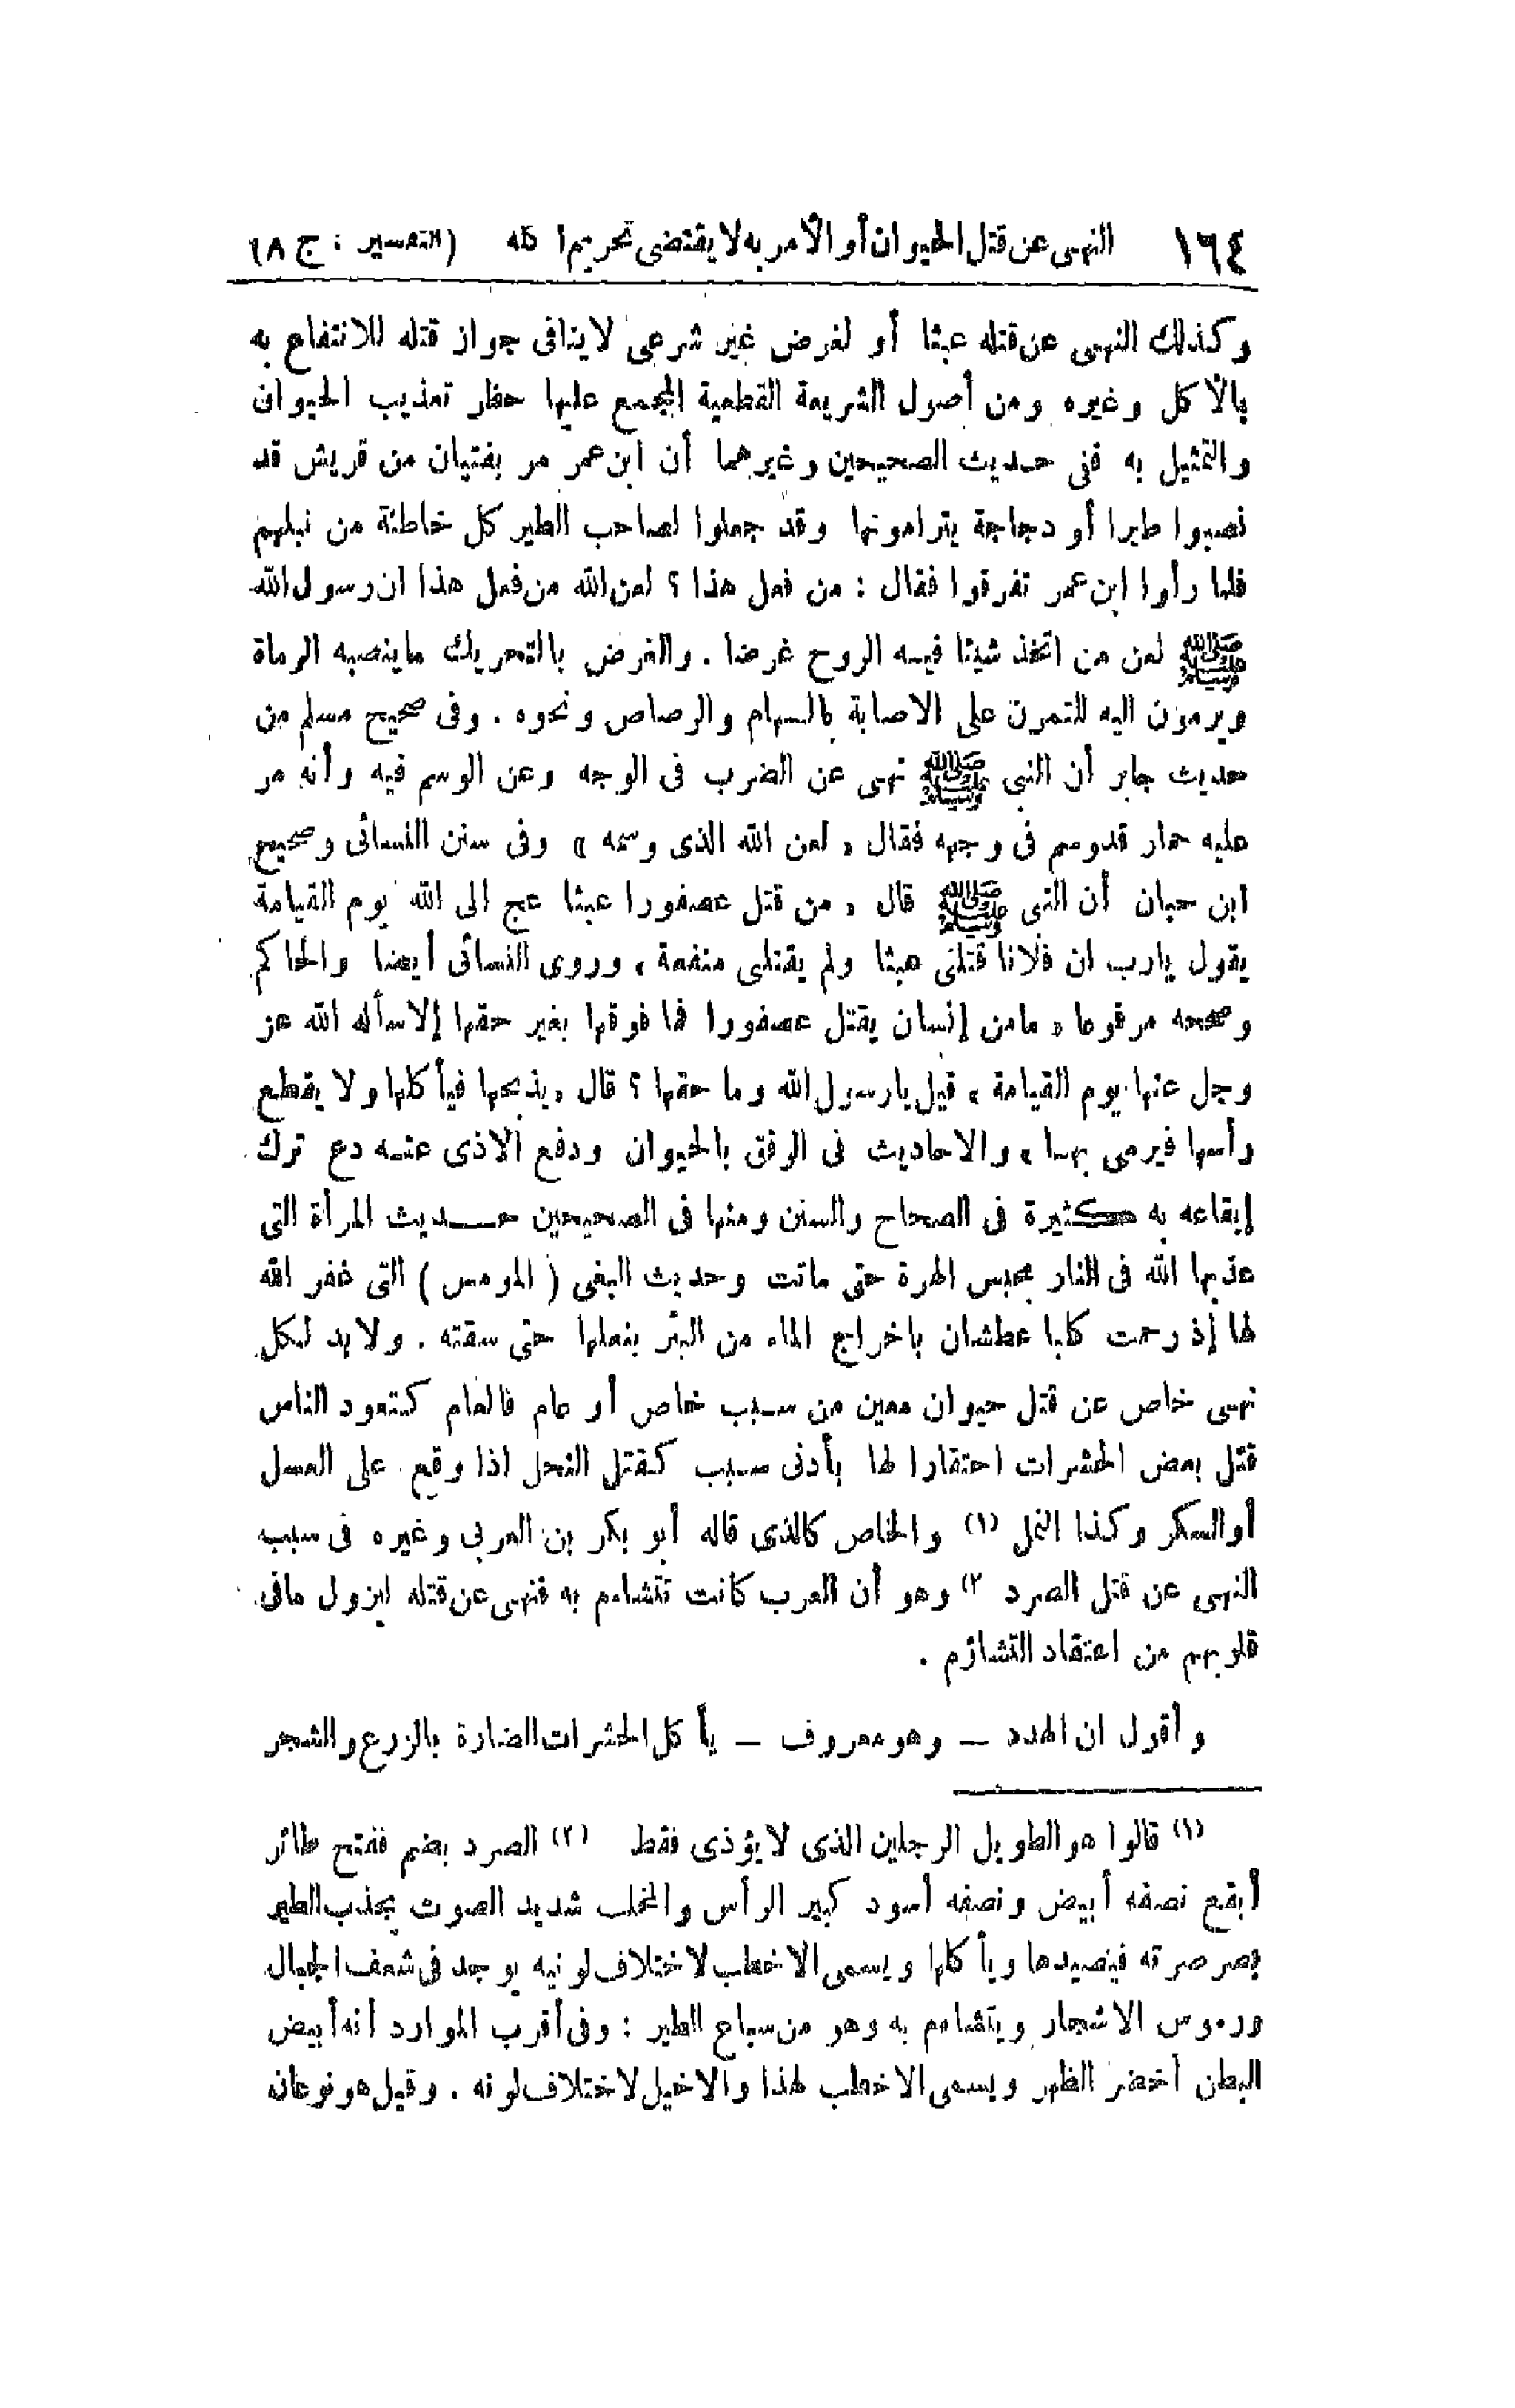 ١٦٤ النهى عن قتل الحيوان أو الأمر به لا يقتضى تحريم أكله (التفسير : ج ٨)
وكذلك النهى عن قتله عبثا أو لغرض غير شرعى لاينافى جواز قتله للانتفاع به
بالأكل وغيره ومن أصول الشريعة القطعية المجمع عليها حظر تعذيب الحيوان
والتمثيل به ففى حديث الصحيحين وغيرهما أن ابن عمر مر بفتيان من قريش قد
نصبوا طيرا أو دجاجة يترامونها وقد جعلوا لصاحب الطير كل خاطئة من نبلهم
فلما رأوا ابن عمر تفرقوا فقال : من فعل هذا ؟ لعن الله من فعل هذا ان رسول الله
ﷺ لعن من اتخذ شيئا فيه الروح غرضا . والغرض بالتحريك ماينصبه الرماة
ويرمون اليه للتمرن على الاصابة بالسهام والرصاص ونحوه . وفى صحيح مسلم من
حديث جابر أن النبى ﷺ نهى عن الضرب فى الوجه وعن الوسم فيه وأنه مر
عليه حمار قدوسم فى وجهه فقال « لعن الله الذى وسمه » وفى سنن النسائى وصحيح
ابن حبان أن النبى ﷺ قال « من قتل عصفورا عبثا عج الى الله يوم القيامة
يقول يارب ان فلانا قتلنى عبثا ولم يقتلنى منفعة » وروى النسائى أيضا والحاكم
وصححه مرفوعا « مامن إنسان يقتل عصفورا فما فوقها بغير حقها إلا سأله الله عز
وجل عنها يوم القيامة » قيل يارسول الله وما حقها ؟ قال «يذبحها فيأكلها ولا يقطع
رأسها فيرمى بهـا » والاحاديث فى الرفق بالحيوان ودفع الأذى عنـه دع ترك
إيقاعه به كثيرة فى الصحاح والسنن ومنها فى الصحيحين حـــديث المرأة التى
عذبها الله فى النار بحبس الهرة حتى ماتت وحديث البغى ( المومس ) التى غفر الله
لها إذ رحمت كلبا عطشان باخراج الماء من البئر بنعلها حتى سقته . ولا بد لكل
نهى خاص عن قتل حيوان معين من سـبب خاص أو عام فالعام كتعود الناس
قتل بعض الحشرات احتقارا لها بأدنى سـبب كقتل النحل اذا وقع على العسل
أو السكر وكذا النمل (١) والخاص كالذى قاله أبو بكر بن العربى وغيره فى سبب
النهى عن قتل الصرد ٢) وهو أن العرب كانت تتشاءم به فنهى عن قتله ليزول مافى
قلوبهم من اعتقاد التشاؤم .
وأقول ان الهدد — وهو معروف — يأكل الحشرات الضارة بالزرع والشجر
(١) قالوا هو الطويل الرجلين الذى لا يؤذى فقط (٢) الصرد بضم ففتح طائر
أبقع نصفه أبيض ونصفه أسود كبير الرأس والمخلب شديد الصوت يجذب الطير
بصرصرته فيصيدها ويأكلها ويسمى الاخطب لاختلاف لونيه يوجد فى شعف الجبال
ورءوس الاشجار ويتشاءم به وهو من سباع الطير : وفى أقرب الموارد أنه أبيض
البطن أخضر الظهر ويسمى الاخطب لهذا والاخيل لاختلاف لونه . وقيل هو نوعان